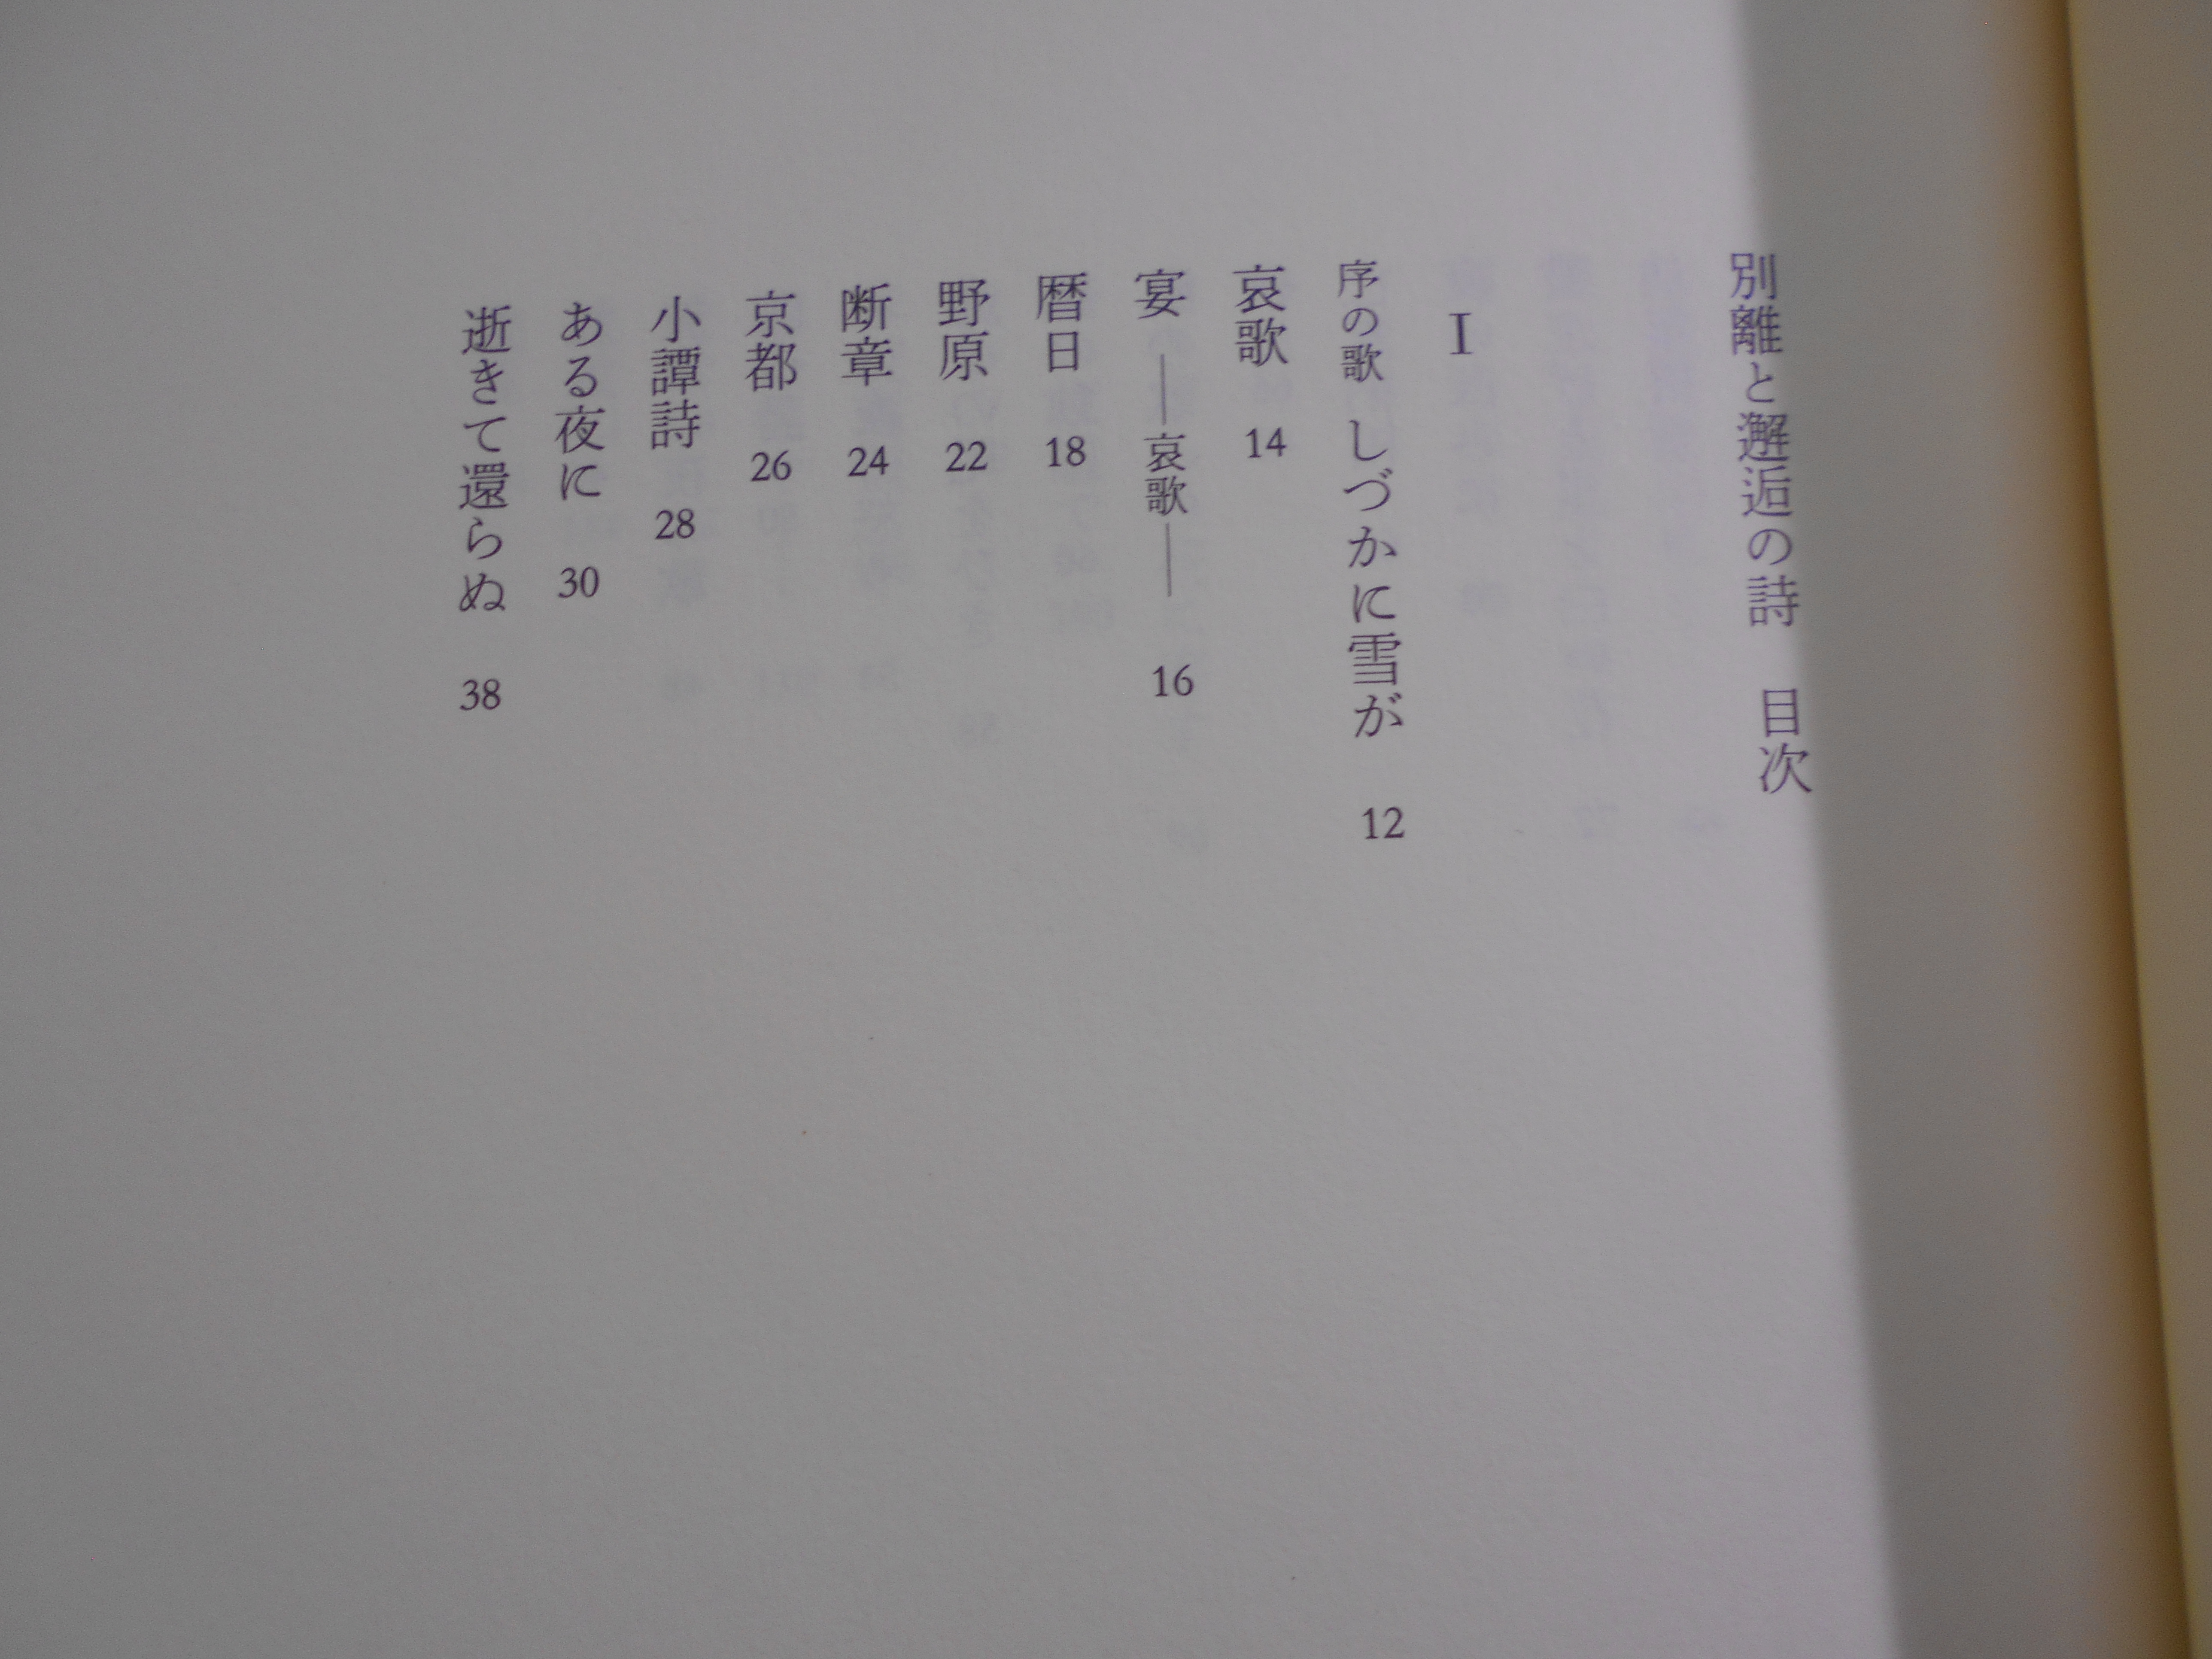 別離と邂逅の詩　目次
I
序の歌　しづかに雪が　12
哀歌　14
宴　──哀歌──　16
暦日　18
野原　22
断章　24
京都　26
小譚詩　28
ある夜に　30
逝きて還らぬ　38